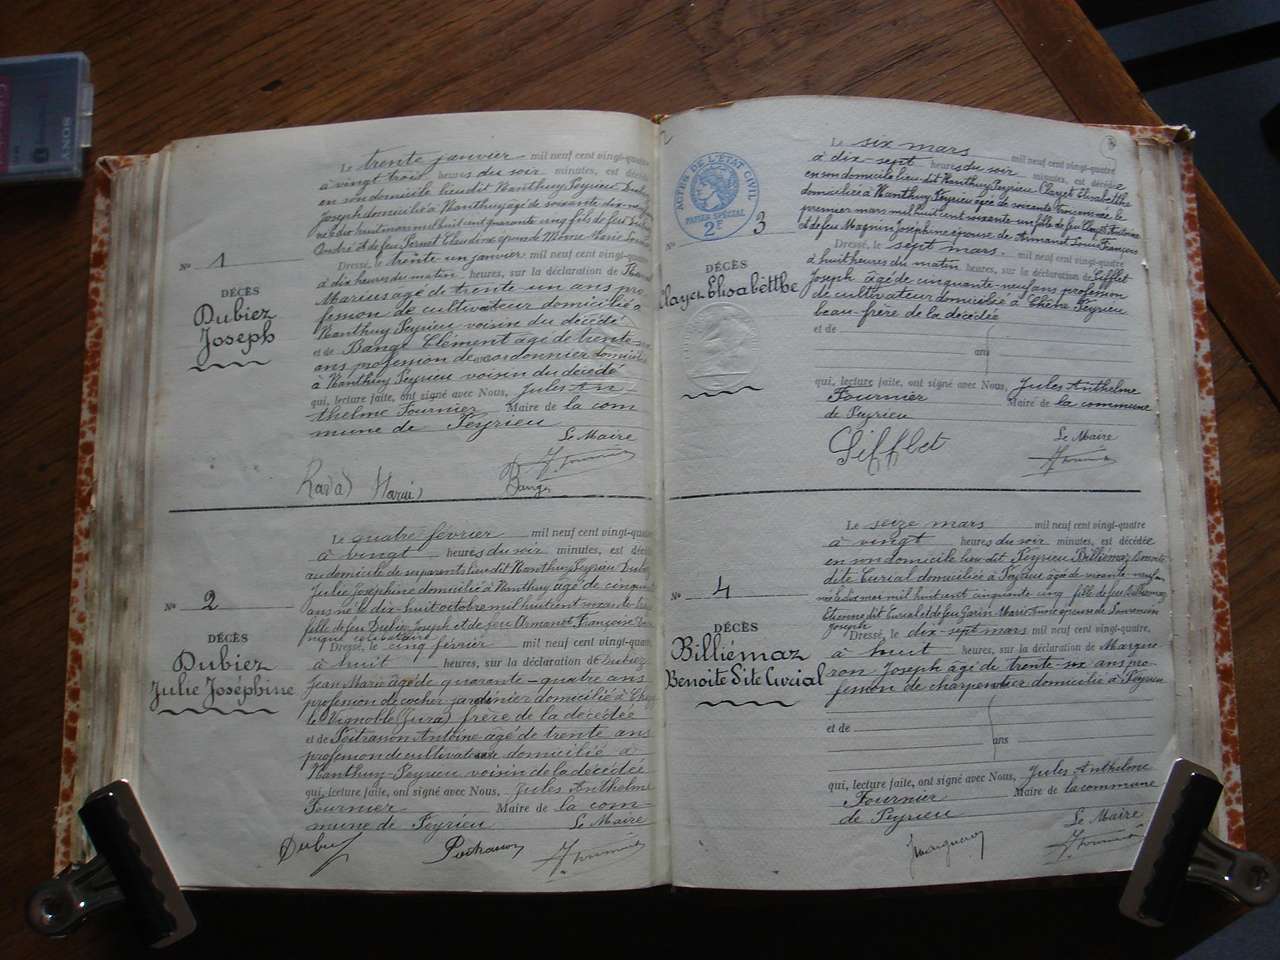 SONY
Le trente janvier mil neuf cent vingt-quatre
à vingt trois heures du soir minutes, est décédé
en son domicile lieu dit Nanthuy Peyrieu Dubiez
Joseph domicilié à Nanthuy âgé de soixante dix
Dressé, le trente un janvier mil neuf cent vingt-quatre
à dix heures du matin heures, sur la déclaration de
Marius âgé de trente un ans pro
fession de cultivateur domicilié à
Nanthuy Peyrieu voisin du décédé
et de Bange Clément âgé de trente
ans profession de cordonnier domicilié
à Nanthuy Peyrieu voisin du décédé
qui, lecture faite, ont signé avec Nous, Jules An
thelme Fournier Maire de la com
mune de Peyrieu
Le Maire
No 1
DÉCÈS
Dubiez
Joseph
Le quatre février mil neuf cent vingt-quatre
à vingt heures du soir minutes, est décédée
au domicile de ses parents lieu dit Nanthuy Peyrieu Dubiez
Julie Joséphine domiciliée à Nanthuy âgé de cinquante
ans née le dix-huit octobre mil huit cent soixante
fille de feu Dubiez Joseph et de feu Armanet Françoise
nique célibataire
Dressé, le cinq février mil neuf cent vingt-quatre
à huit heures, sur la déclaration de Dubiez
Jean Marie âgé de quarante-quatre ans
profession de cocher jardinier domicilié à
le Vignoble (Jura) frère de la décédée
et de Antoine âgé de trente ans
profession de cultivateur domicilié à
Nanthuy-Peyrieu voisin de la décédée
qui, lecture faite, ont signé avec Nous, Jules Anthelme
Fournier Maire de la com-
mune de Peyrieu Le Maire
No 2
DÉCÈS
Dubiez
Julie Joséphine
ACTES DE L'ÉTAT CIVIL
PAPIER SPÉCIAL
2F
Le six mars mil neuf cent vingt-quatre
à dix-sept heures du soir minutes, est décédée
en son domicile lieu dit Nanthuy Peyrieu Clayet Elisabetthe
domiciliée à Nanthuy Peyrieu âgée de soixante trois ans née le
premier mars mil huit cent soixante un fille de feu Clayet Antoine
et de feu Magnin Joséphine épouse de Armanet Louis François
Dressé, le sept mars mil neuf cent vingt-quatre
à huit heures du matin heures, sur la déclaration de Sifflet
Joseph âgé de cinquante neuf ans profession
de cultivateur domicilié à Chène Peyrieu
beau-frère de la décédée
et de
ans
qui, lecture faite, ont signé avec Nous, Jules Anthelme
Fournier Maire de la commune
de Peyrieu
Le Maire
Sifflet
No 3
DÉCÈS
Clayet Elisabetthe
Le seize mars mil neuf cent vingt-quatre
à vingt heures du soir minutes, est décédée
en son domicile lieu dit Peyrieu Billiémaz Benoite
dite Curial domiciliée à Peyrieu âgée de soixante-neuf ans
née le dix mars mil huit cent cinquante cinq fille de feu Billiémaz
Etienne dit Curial et de feu Garin Marie épouse de
Joseph
Dressé, le dix-sept mars mil neuf cent vingt-quatre,
à huit heures, sur la déclaration de Margue
ron Joseph âgé de trente-six ans pro-
fession de charpentier domicilié à Peyrieu
et de
ans
qui, lecture faite, ont signé avec Nous, Jules Anthelme
Fournier Maire de la commune
de Peyrieu
Le Maire
No 4
DÉCÈS
Billiémaz
Benoite Dite Curial